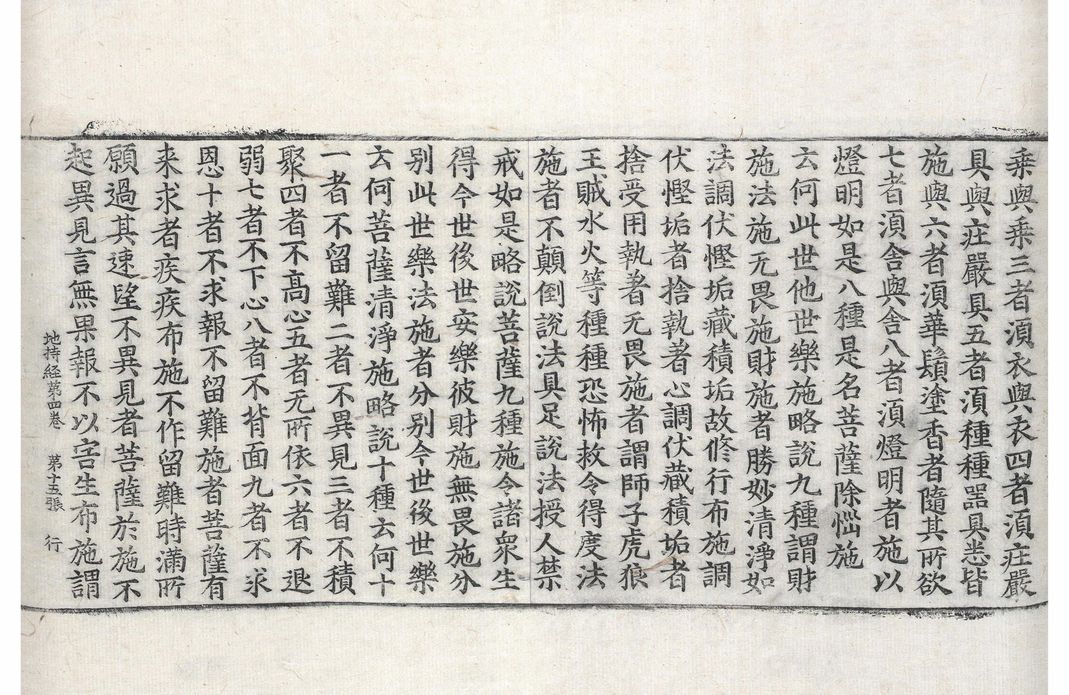 乗與乗三者湏衣與衣四者湏荘嚴
具與荘嚴具五者湏種種噐具悉皆
施與六者湏華鬘塗香者隨其所欲
七者湏舎與舎八者湏燈明者施以
燈明如是八種是名菩薩除惱施
云何此世他世樂施略說九種謂財
施法施无畏施財施者勝妙清淨如
法調伏慳垢藏積垢故修行布施調
伏慳垢者捨執著心調伏藏積垢者
捨受用執著无畏施者謂師子虎狼
王賊水火等種種恐怖救令得度法
施者不顛倒說法具足說法授人禁
戒如是略說菩薩九種施令諸衆生
得今世後世安樂彼財施無畏施分
别此世樂法施者分别今世後世樂
云何菩薩清淨施略說十種云何十
一者不留難二者不異見三者不積
聚四者不高心五者无所依六者不退
弱七者不下心八者不背面九者不求
恩十者不求報不留難施者菩薩有
来求者疾疾布施不作留難時滿所
願過其速望不異見者菩薩於施不
起異見言無果報不以害生布施謂
地持経第四巻 第十五張 行